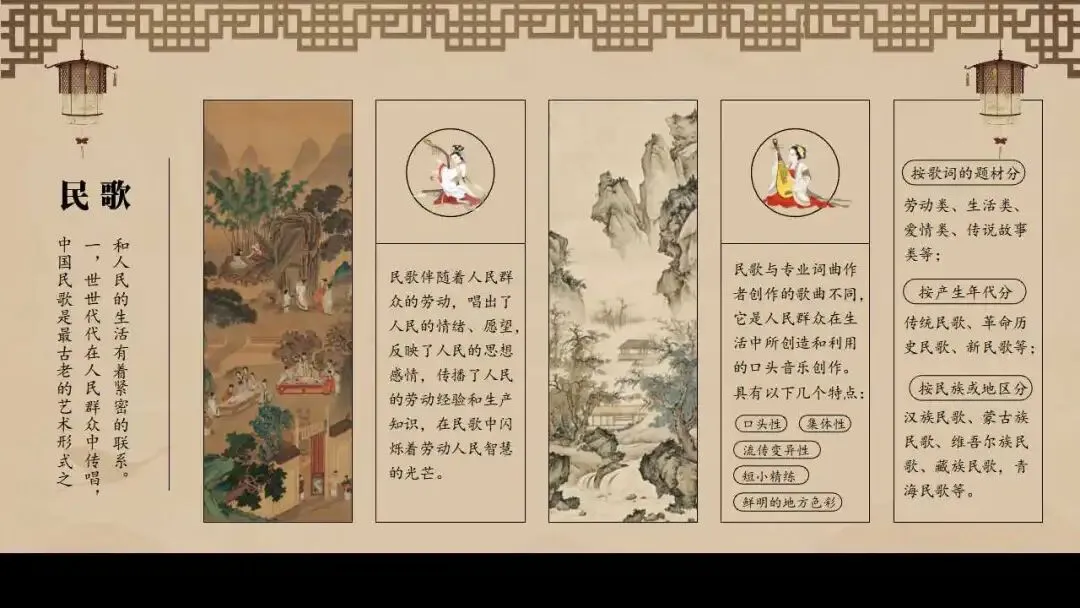 民歌
中国民歌是最古老的艺术形式之
一，世世代代在人民群众中传唱，
和人民的生活有着紧密的联系。
民歌伴随着人民群
众的劳动，唱出了
人民的情绪、愿望，
反映了人民的思想
感情，传播了人民
的劳动经验和生产
知识，在民歌中闪
烁着劳动人民智慧
的光芒。
民歌与专业词曲作
者创作的歌曲不同，
它是人民群众在生
活中所创造和利用
的口头音乐创作。
具有以下几个特点：
口头性
集体性
流传变异性
短小精练
鲜明的地方色彩
按歌词的题材分
劳动类、生活类、
爱情类、传说故事
类等；
按产生年代分
传统民歌、革命历
史民歌、新民歌等；
按民族或地区分
汉族民歌、蒙古族
民歌、维吾尔族民
歌、藏族民歌，青
海民歌等。